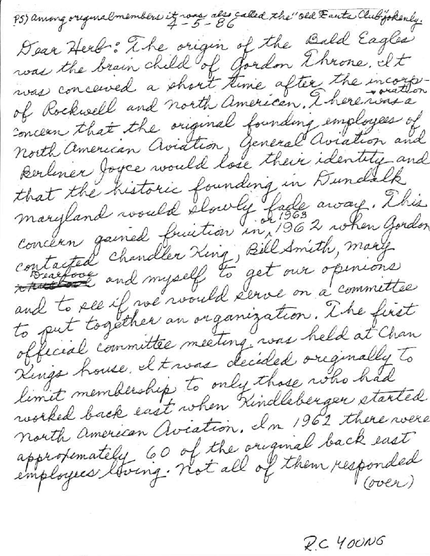 PS) Among original members it was also called the "Old Farts Club" jokenly.
4-5-86
Dear Herb: The origin of the Bald Eagles
was the brain child of Gordon Throne. It
was conceived a short time after the incorp-
oration
of Rockwell and North American. There was a
concern that the original founding employees of
North American Aviation, General Aviation and
Berliner Joyce would lose their identity and
that the historic founding in Dundalk
Maryland would slowly fade away. This
or 1963
concern gained fruition in 1962 when Gordon
contacted Chandler King, Bill Smith, Mary
and myself to get our opinions
and to see if we would serve on a committee
to put together an organization. The first
official committee meeting was held at Chan
Kings house. It was decided originally to
limit membership to only those who had
worked back east when Kindleberger started
North American Aviation. In 1962 there were
approximately 60 of the original back east
employees living. Not all of them responded
(over)
R.C YOUNG